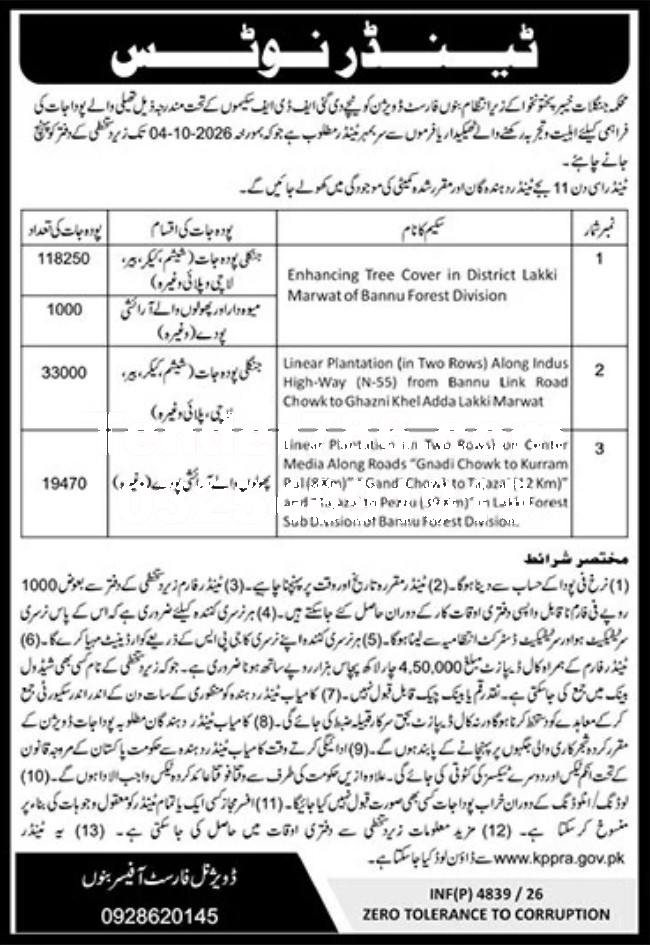 ٹینڈر نوٹس
محکمہ جنگلات خیبر پختونخوا کے زیر انتظام بنوں فارسٹ ڈویژن کو نیچے دی گئی ایف ڈی ایف سکیموں کے تحت مندرجہ ذیل تھیلی والے پودا جات کی
فراہمی کیلئے اہلیت و تجربہ رکھنے والے ٹھیکیدار یا فرموں سے سربمہر ٹینڈر مطلوب ہے جو کہ بمورخہ 2026-10-04 تک زیر دستخطی کے دفتر کو پہنچ
جانے چاہئے۔
ٹینڈر اسی دن 11 بجے ٹینڈر دہندہ گان اور مقرر شدہ کمیٹی کی موجودگی میں کھولے جائیں گے۔
نمبر شمار سکیم کا نام پودہ جات کی اقسام پودہ جات کی تعداد
1 Enhancing Tree Cover in District Lakki
Marwat of Bannu Forest Division
جنگلی پودہ جات (شیشم، کیکر، بیر،
لاچی و پلائی وغیرہ)
118250
میوہ دار اور پھولوں والے آرائشی
پودے (وغیرہ)
1000
2 Linear Plantation (in Two Rows) Along Indus
High-Way (N-55) from Bannu Link Road
Chowk to Ghazni Khel Adda Lakki Marwat
جنگلی پودہ جات (شیشم، کیکر، بیر،
لاچی، پلائی وغیرہ)
33000
3 Linear Plantation (in Two Rows) on Center
Media Along Roads "Gnadi Chowk to Kurram
Pul (8Km)" "Gandi Chowk to Tajaza" (12 Km)"
and "Tajaza to Pezzu (39 Km)" in Lakki Forest
Sub Division of Bannu Forest Division.
پھولوں والے آرائشی پودے (وغیرہ)
19470
مختصر شرائط
(1) نرخ فی پودا کے حساب سے دینا ہوگا۔ (2) ٹینڈر مقررہ تاریخ اور وقت پر پہنچنا چاہیے۔ (3) ٹینڈر فارم زیر دستخطی کے دفتر سے بعوض 1000
روپے فی فارم نا قابل واپسی دفتری اوقات کار کے دوران حاصل کئے جا سکتے ہیں۔ (4) ہر نرسری کنندہ کیلئے ضروری ہے کہ اس کے پاس نرسری
سرٹیفکیٹ ہو اور سرٹیفکیٹ ڈسٹرکٹ انتظامیہ سے لینا ہوگا۔ (5) ہر نرسری کنندہ اپنے نرسری کا جی پی ایس کے ذریعے کوارڈینیٹ مہیا کرے گا۔ (6)
ٹینڈر فارم کے ہمراہ کال ڈیپازٹ مبلغ 4,50,000 چار لاکھ پچاس ہزار روپے ساتھ ہونا ضروری ہے۔ جو کہ زیر دستخطی کے نام کسی بھی شیڈول
بینک میں جمع کی جا سکتی ہے۔ نقد رقم یا بینک چیک قابل قبول نہیں۔ (7) کامیاب ٹینڈر دہندہ کو منظوری کے سات دن کے اندر اندر سکیورٹی جمع
کر کے معاہدے کو دستخط کرنا ہوگا ورنہ کال ڈیپازٹ بحق سرکار قبیلہ ضبط کی جائے گی۔ (8) کامیاب ٹینڈر دہندگان مطلوبہ پودا جات ڈویژن کے
مقرر کردہ شجرکاری والی جگہوں پر پہنچانے کے پابند ہوں گے۔ (9) ادائیگی کرتے وقت کامیاب ٹینڈر دہندہ سے حکومت پاکستان کے مروجہ قانون
کے تحت انکم ٹیکس اور دوسرے ٹیکسز کی کٹوتی کی جائے گی۔ علاوہ ازیں حکومت کی طرف سے وقتا فوقتا عائد کردہ ٹیکس واجب الادا ہوں گے۔ (10)
لوڈنگ / انلوڈنگ کے دوران خراب پودا جات کسی بھی صورت قبول نہیں کیا جائیگا۔ (11) آفسر مجاز کسی ایک یا تمام ٹینڈر کو معقول وجوہات کی بناء پر
منسوخ کر سکتا ہے۔ (12) مزید معلومات زیر دستخطی سے دفتری اوقات میں حاصل کی جا سکتی ہے۔ (13) یہ ٹینڈر
www.kppra.gov.pk سے ڈاؤن لوڈ کیا جا سکتا ہے۔
ڈویژنل فارسٹ آفیسر بنوں
0928620145
INF(P) 4839 / 26
ZERO TOLERANCE TO CORRUPTION